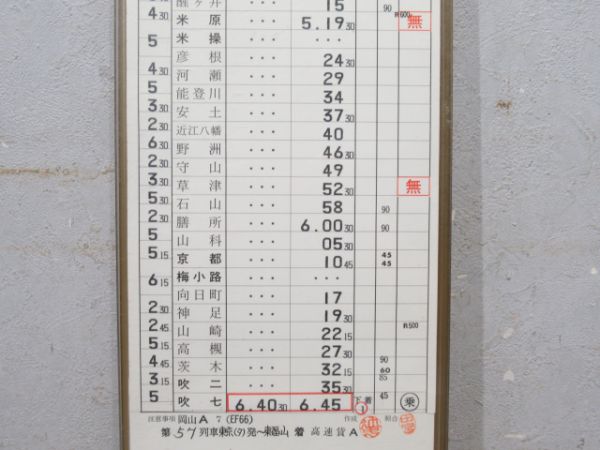 醒ヶ井 ・・・ 15 90
4 30 米原 ・・・ 5.19 30 R600 無
5 米操 ・・・ ・・・
彦根 ・・・ 24 30
4 30 河瀬 ・・・ 29
5 能登川 ・・・ 34
3 30 安土 ・・・ 37 30
2 30 近江八幡 ・・・ 40
6 30 野洲 ・・・ 46 30
2 30 守山 ・・・ 49
3 30 草津 ・・・ 52 30 無
5 30 石山 ・・・ 58 90
2 30 膳所 ・・・ 6.00 30 90
5 山科 ・・・ 05 30
5 15 京都 ・・・ 10 45 45 45
梅小路 ・・・ ・・・
6 15 向日町 ・・・ 17
2 30 神足 ・・・ 19 30
2 45 山崎 ・・・ 22 15 R500
5 15 高槻 ・・・ 27 30
4 45 茨木 ・・・ 32 15 90 60
3 15 吹二 ・・・ 35 30 85
5 吹七 6.40 30 6.45 下着 1 45 乗
注意事項 岡山A 7 (EF66) 作成 照合
第57列車東京(タ)発〜東福山着 高速貨A